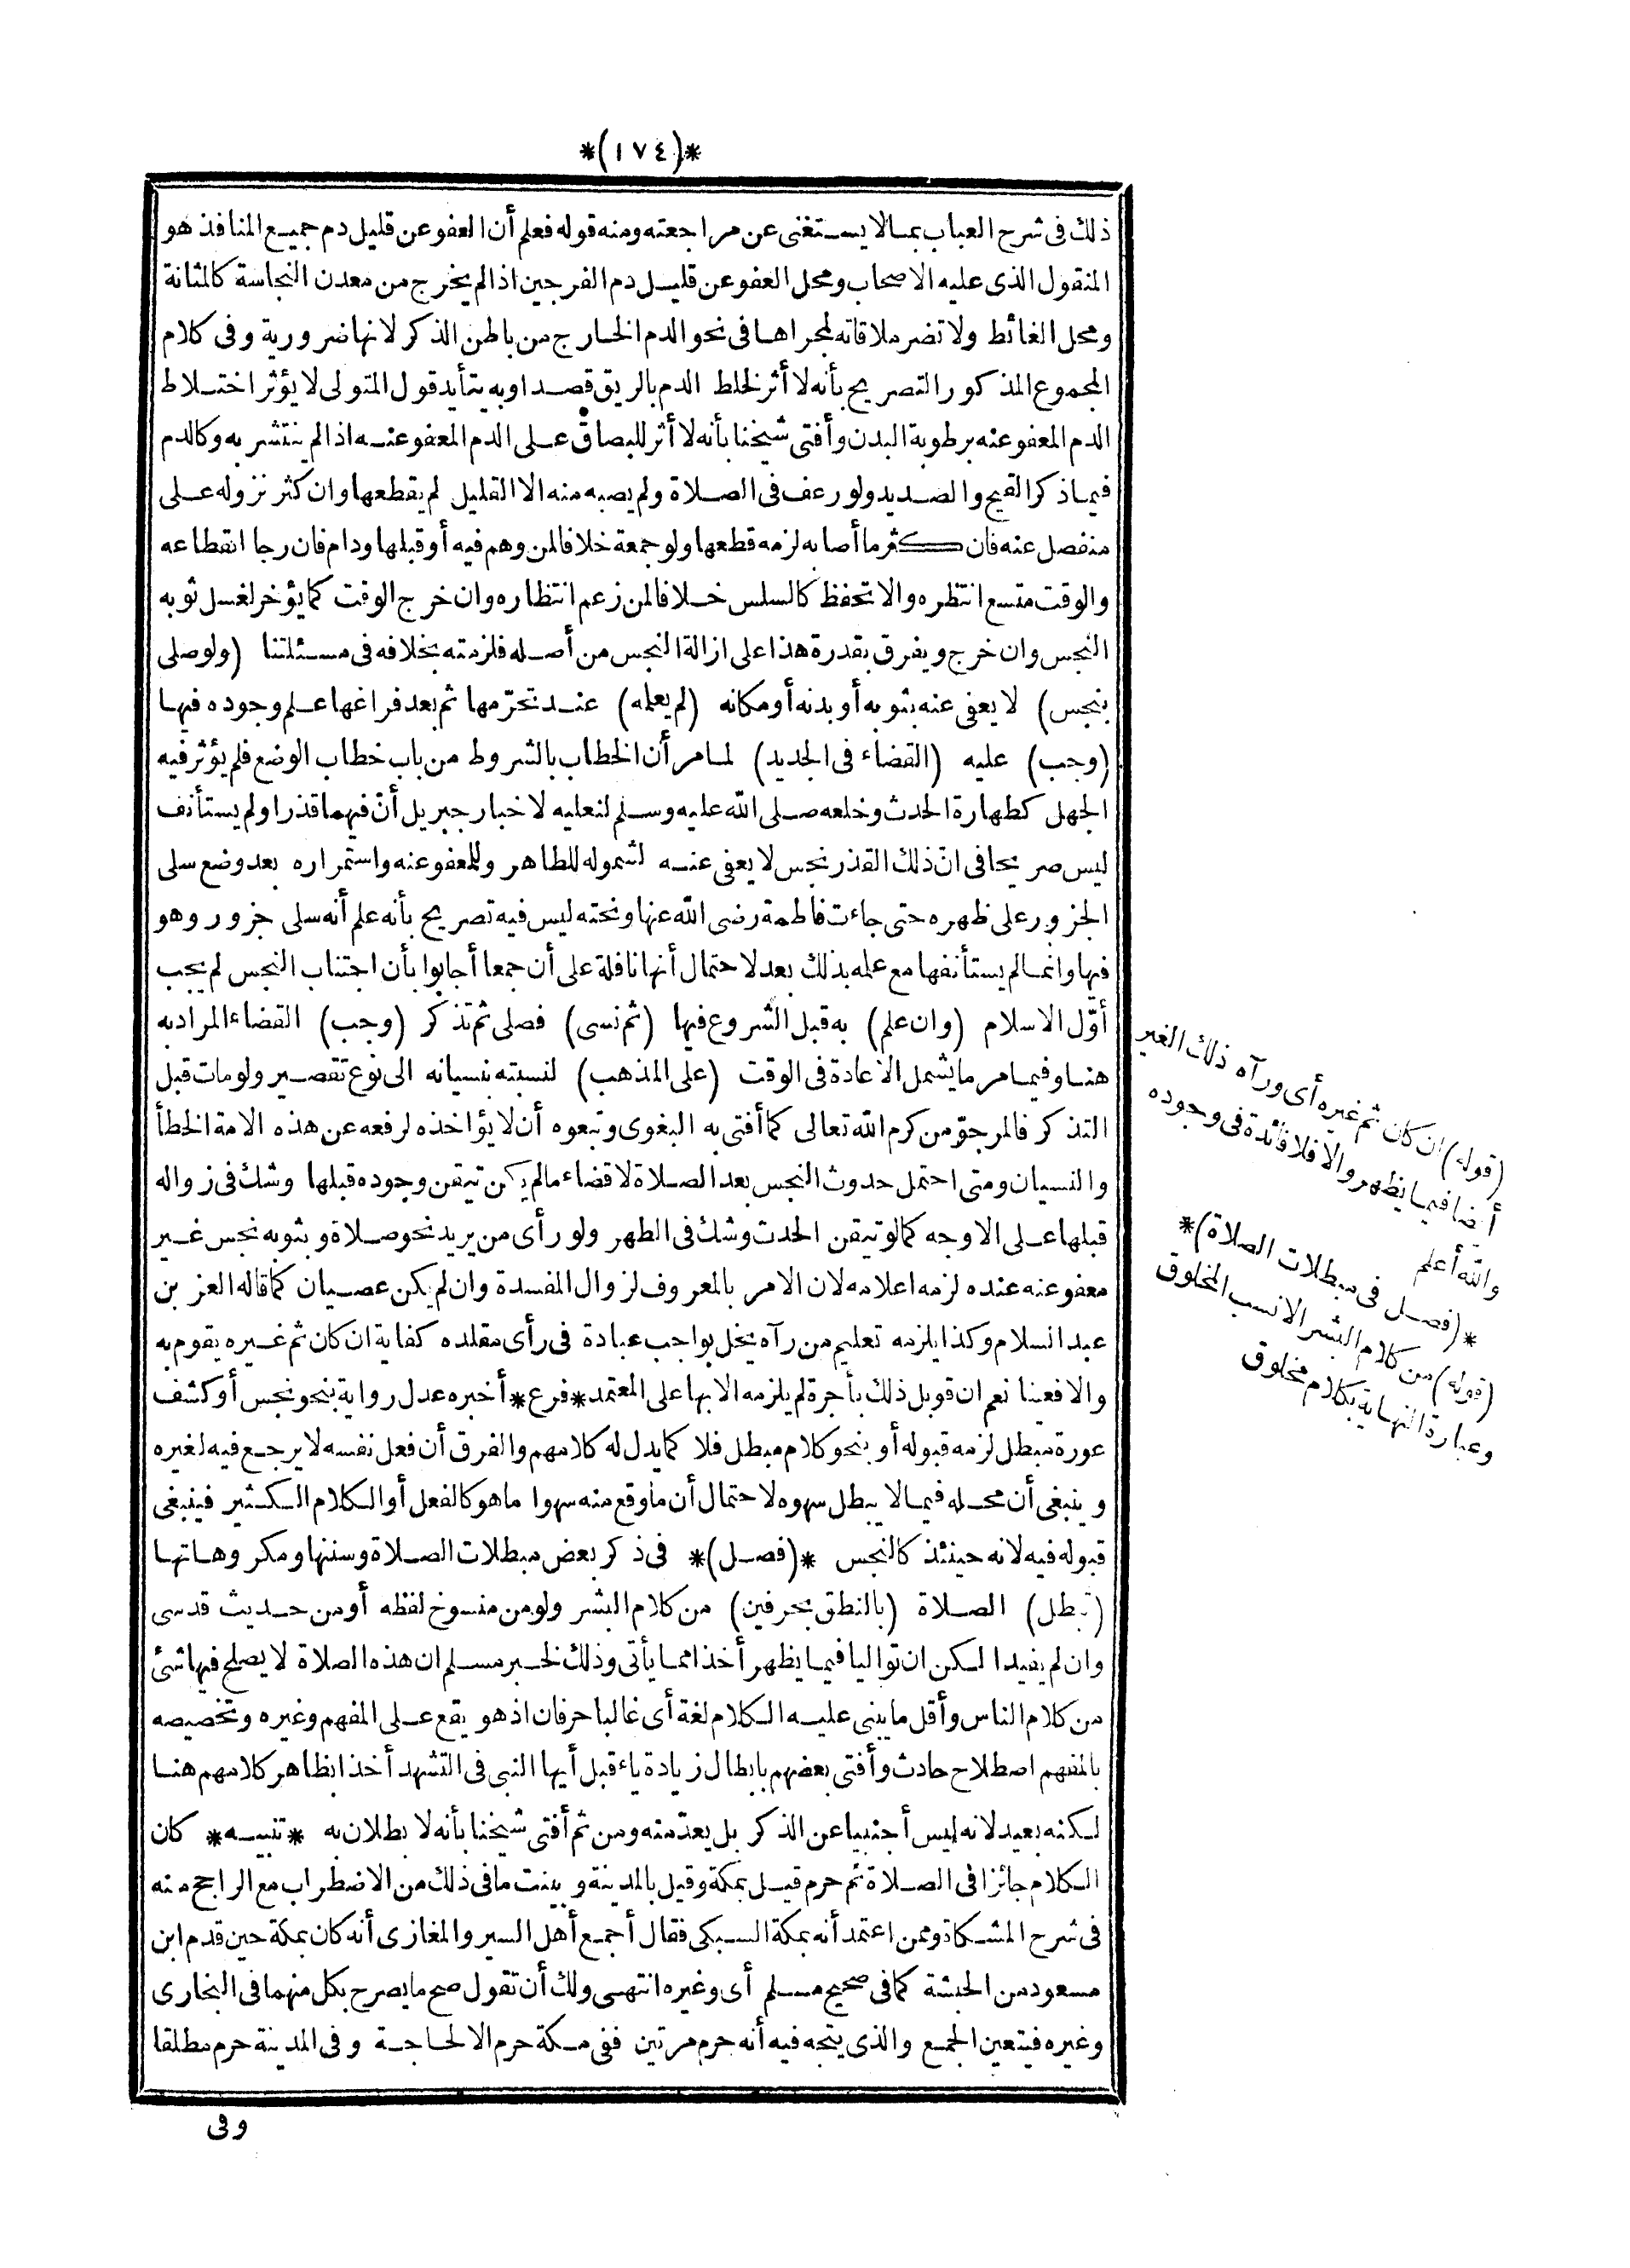 *(١٧٤)*
ذلك فى شرح العباب بما لا يستغنى عن مراجعته ومنه قوله فعلم أن العفو عن قليل دم جميع المنافذ هو
المنقول الذى عليه الاصحاب ومحل العفو عن قليل دم الفرجين اذا لم يخرج من معدن النجاسة كالمثانة
ومحل الغائط ولا تضر ملاقاته لمجراها فى نحو الدم الخارج من باطن الذكر لانها ضرورية وفى كلام
المجموع المذكور التصريح بأنه لا أثر لخلط الدم بالريق قصدا وبه يتأيد قول المتولى لا يؤثر اختلاط
الدم المعفو عنه برطوبة البدن وأفتى شيخنا بأنه لا أثر للبصاق على الدم المعفو عنه اذا لم ينتشر به وكالدم
فيما ذكر القيح والصديد ولو رعف فى الصلاة ولم يصبه منه الا القليل لم يقطعها وان كثر نزوله على
منفصل عنه فان كثر ما أصابه لزمه قطعها ولو جمعة خلافا لمن وهم فيه أو قبلها ودام فان رجا انقطاعه
والوقت متسع انتظره والا تحفظ كالسلس خلافا لمن زعم انتظاره وان خرج الوقت كما يؤخر لغسل ثوبه
النجس وان خرج ويفرق بقدرة هذا على ازالة النجس من أصله فلزمته بخلافه فى مسئلتنا (ولو صلى
بنجس) لا يعفى عنه بثوبه أو بدنه أو مكانه (لم يعلمه) عند تحرّمها ثم بعد فراغها علم وجوده فيها
(وجب) عليه (القضاء فى الجديد) لما مر أن الخطاب بالشروط من باب خطاب الوضع فلم يؤثر فيه
الجهل كطهارة الحدث وخلعه صلى الله عليه وسلم لنعليه لاخبار جبريل أنّ فيهما قذرا ولم يستأنف
ليس صريحا فى انّ ذلك القذر نجس لا يعفى عنه لشموله للطاهر وللمعفو عنه واستمراره بعد وضع سلى
الجزور على ظهره حتى جاءت فاطمة رضى الله عنها ونحته ليس فيه تصريح بأنه علم أنه سلى جزور وهو
فيها وانما لم يستأنفها مع علمه بذلك بعد لاحتمال أنها نافلة على أن جمعا أجابوا بأن اجتناب النجس لم يجب
أوّل الاسلام (وان علم) به قبل الشروع فيها (ثم نسى) فصلى ثم تذكر (وجب) القضاء المراد به
هنا وفيما مر ما يشمل الاعادة فى الوقت (على المذهب) لنسبته بنسيانه الى نوع تقصير ولو مات قبل
التذكر فالمرجوّ من كرم الله تعالى كما أفتى به البغوى وتبعوه أن لا يؤاخذه لرفعه عن هذه الامة الخطأ
والنسيان ومتى احتمل حدوث النجس بعد الصلاة لا قضاء ما لم يكن تيقن وجوده قبلها وشك فى زواله
قبلها على الاوجه كما لو تيقن الحدث وشك فى الطهر ولو رأى من يريد نحو صلاة وبثوبه نجس غير
معفو عنه عنده لزمه اعلامه لان الامر بالمعروف لزوال المفسدة وان لم يكن عصيان كما قاله العز بن
عبد السلام وكذا يلزمه تعليم من رآه يخل بواجب عبادة فى رأى مقلده كفاية ان كان ثم غيره يقوم به
والا فعينا نعم ان قوبل ذلك بأجرة لم يلزمه الا بها على المعتمد *فرع* أخبره عدل رواية بنحو نجس أو كشف
عورة مبطل لزمه قبوله أو بنحو كلام مبطل فلا كما يدل له كلامهم والفرق أن فعل نفسه لا يرجع فيه لغيره
وينبغى أن محله فيما لا يبطل سهوه لاحتمال أن ما وقع منه سهوا ما هو كالفعل أو الكلام الكثير فينبغى
قبوله فيه لانه حينئذ كالنجس *(فصل)* فى ذكر بعض مبطلات الصلاة وسننها ومكروهاتها
(تبطل) الصلاة (بالنطق بحرفين) من كلام البشر ولو من منسوخ لفظه أو من حديث قدسى
وان لم يفيدا لكن ان تواليا فيما يظهر أخذا مما يأتى وذلك لخبر مسلم ان هذه الصلاة لا يصلح فيها شئ
من كلام الناس وأقل ما يبنى عليه الكلام لغة أى غالبا حرفان اذ هو يقع على المفهم وغيره وتخصيصه
بالمفهم اصطلاح حادث وأفتى بعضهم بابطال زيادة ياء قبل أيها النبى فى التشهد أخذا بظاهر كلامهم هنا
لكنه بعيد لانه ليس أجنبيا عن الذكر بل يعدّ منه ومن ثم أفتى شيخنا بأنه لا بطلان به *تنبيه* كان
الكلام جائزا فى الصلاة ثم حرم قيل بمكة وقيل بالمدينة وبينت ما فى ذلك من الاضطراب مع الراجح منه
فى شرح المشكاة وممن اعتمد أنه بمكة السبكى فقال أجمع أهل السير والمغازى أنه كان بمكة حين قدم ابن
مسعود من الحبشة كما فى صحيح مسلم أى وغيره انتهى ولك أن تقول صح ما يصرح بكل منهما فى البخارى
وغيره فيتعين الجمع والذى يتجه فيه أنه حرم مرتين ففى مكة حرم الا لحاجة وفى المدينة حرم مطلقا
وفى
(قوله) ان كان ثم غيره أى ورآه ذلك الغير
أيضا فيما يظهر والا فلا فائدة فى وجوده
والله أعلم
*(فصل فى مبطلات الصلاة)*
(قوله) من كلام البشر الانسب المخلوق
وعبارة النهاية بكلام مخلوق